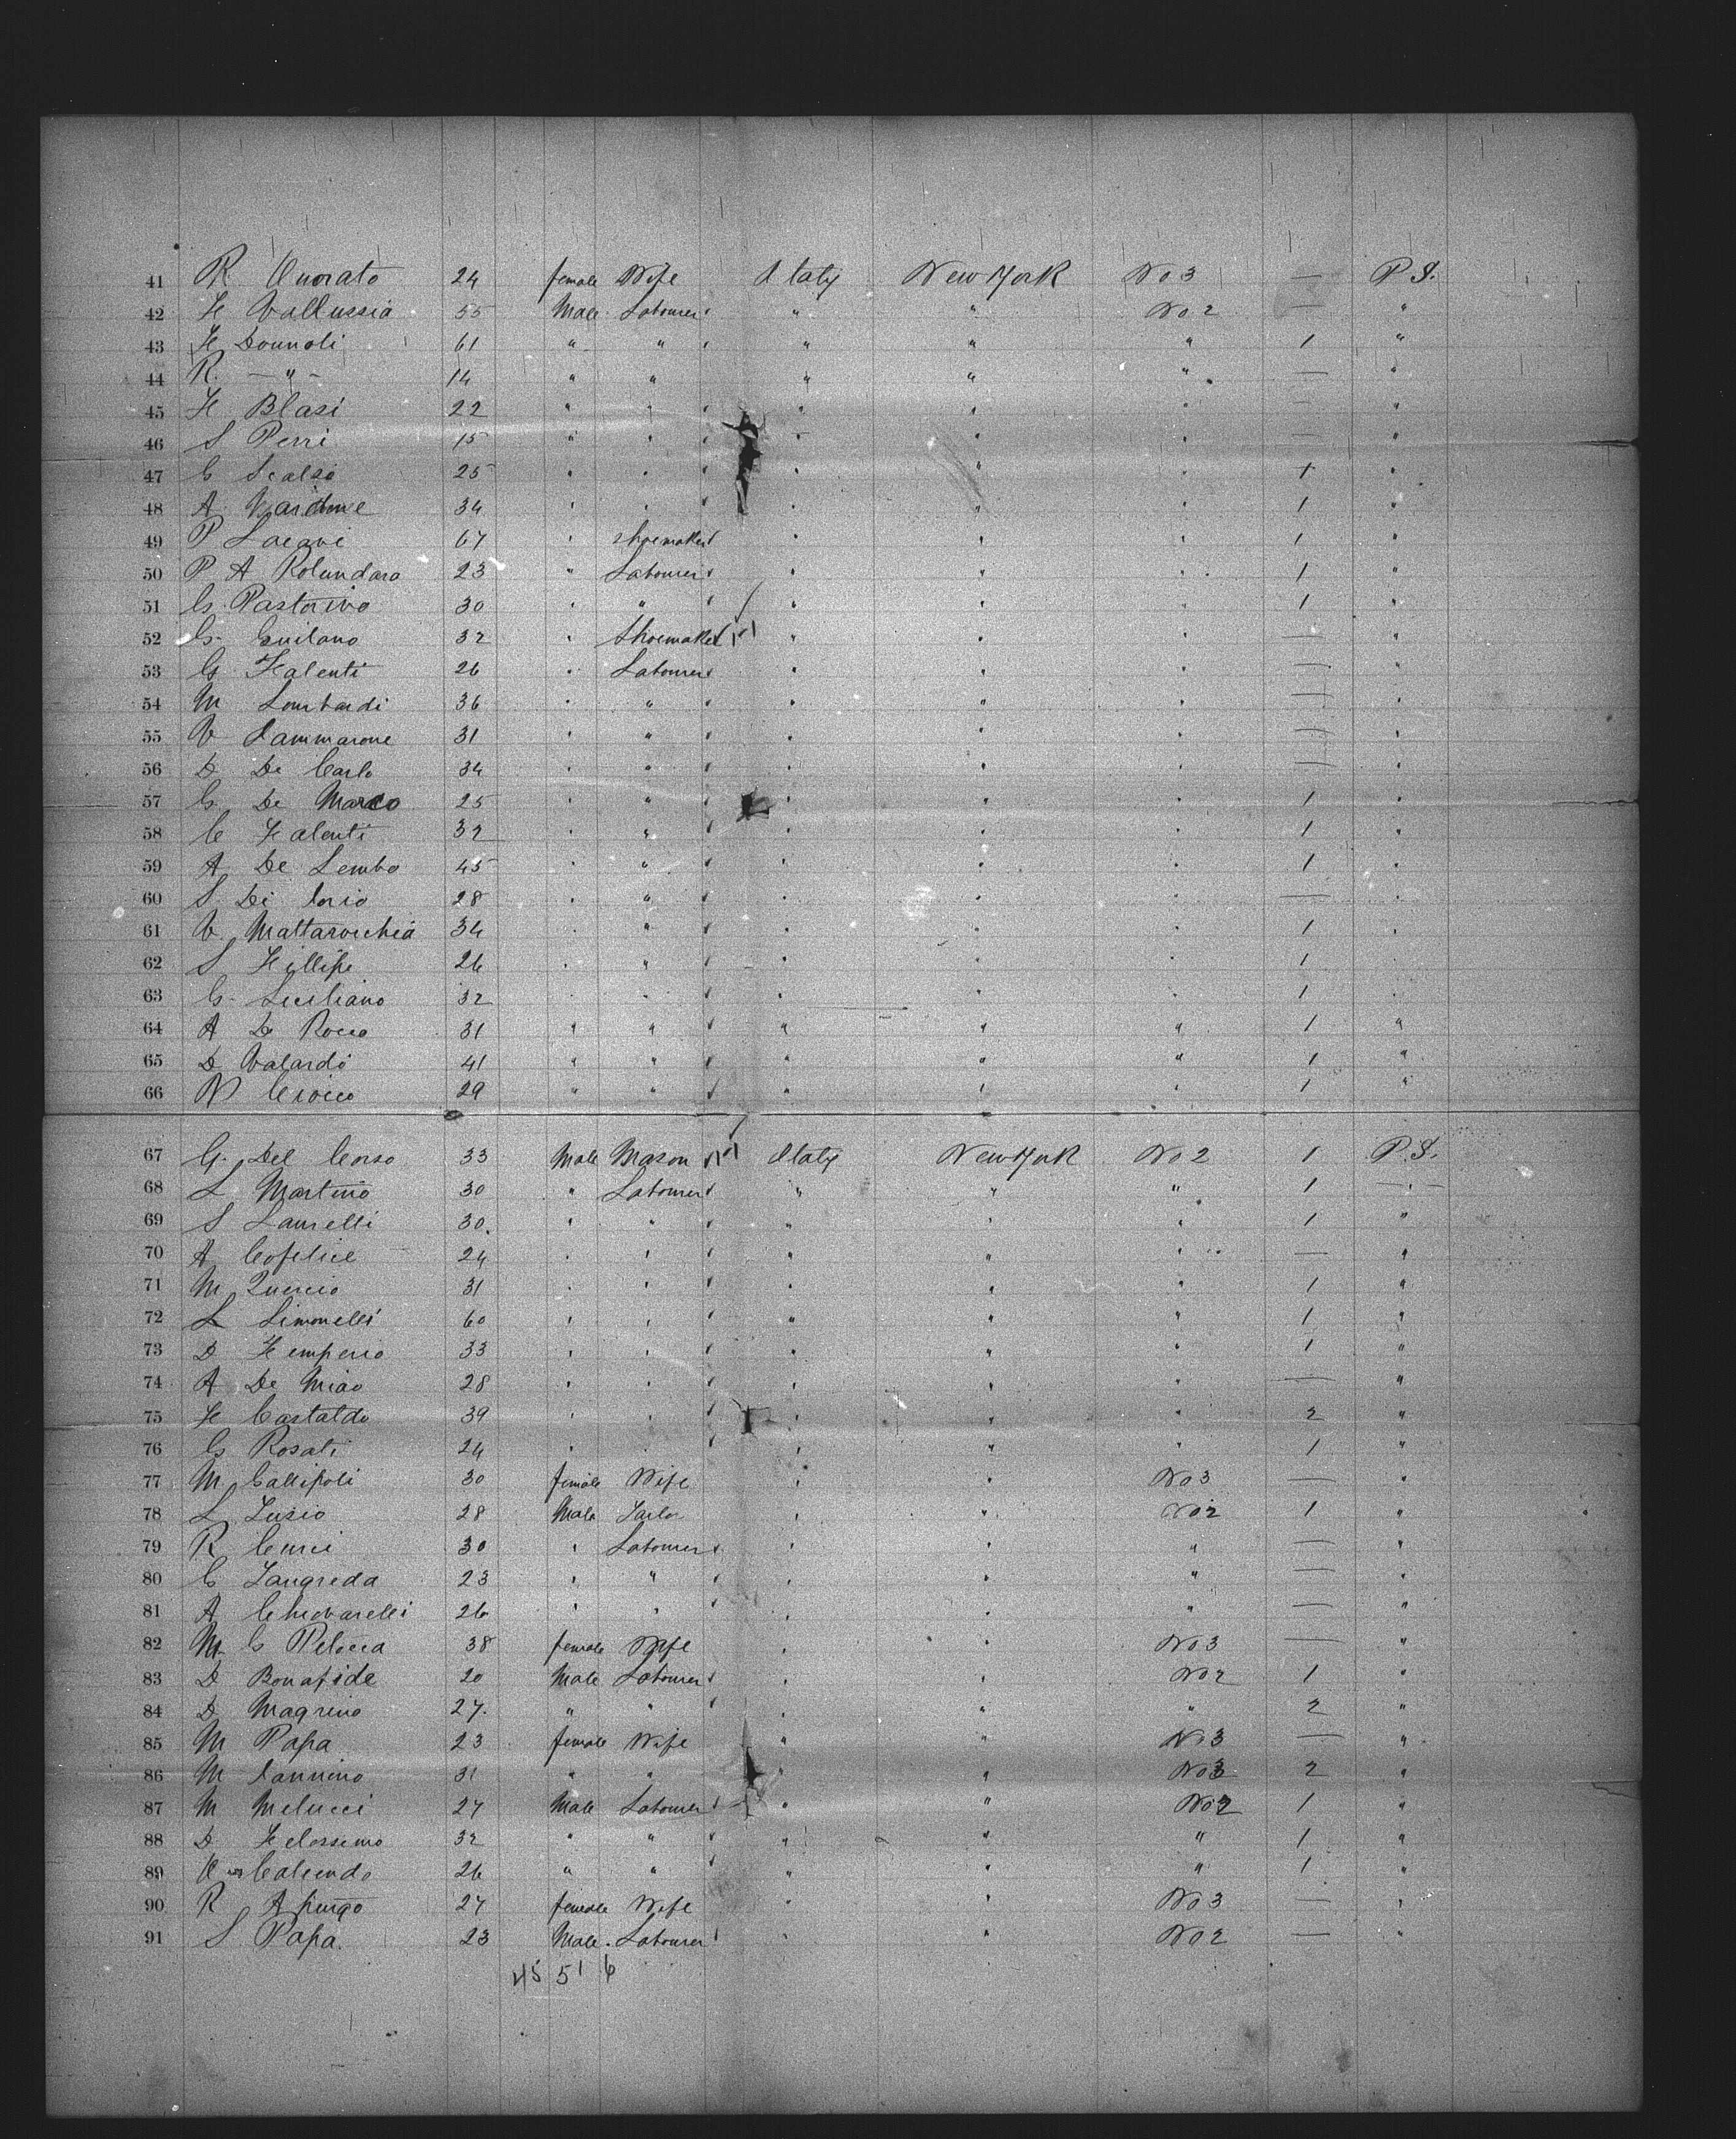 41 R Onorato 24 female Wife Italy New York No 3 — P.S.
42 F Vallussia 55 Male Labourer " " No 2 — "
43 F Dounoli 61 " " " " " 1 "
44 R. — " — 14 " " " " " — "
45 F Blasi 22 " " " " " — "
46 S Perri 15 " " " " " — "
47 G Scalzo 25 " " " " " 1 "
48 A 34 " " " " " 1 "
49 P 67 " Shoemaker " " " 1 "
50 P A Rolundara 23 " Labourer " " " 1 "
51 G. Pastorino 30 " " " " " 1 "
52 G. Guilano 32 " Shoemaker " " " — "
53 G Falenti 26 " Labourer " " " — "
54 M Lombardi 36 " " " " " — "
55 V Iammarone 31 " " " " " — "
56 D De Carlo 34 " " " " " — "
57 G De Marco 25 " " " " " 1 "
58 C Falenti 32 " " " " " 1 "
59 A De Lembo 45 " " " " " 1 "
60 S Di Iorio 28 " " " " " — "
61 V. Mattarocchia 34 " " " " " 1 "
62 S Fillipe 26 " " " " " 1 "
63 G. Siciliano 32 " " " " " 1 "
64 A De Rocco 31 " " " " " 1 "
65 D Valardo 41 " " " " " 1 "
66 N Cicico 29 " " " " " 1 "
67 G. Del Corso 33 Male Mason Italy New York No 2 1 P.S.
68 L Martino 30 " Labourer " " " 1 — " —
69 S Laurelli 30. " " " " " 1 "
70 A Cofelice 24 " " " " " — "
71 M Quercio 31 " " " " " 1 "
72 L Simonelli 60 " " " " " 1 "
73 D Femperio 33 " " " " " 1 "
74 A De Miao 28 " " " " " — "
75 F Castaldo 39 " " " " " 2 "
76 G Rosati 24 " " " " " 1 "
77 M Gallipoli 30 female Wife " " No 3 — "
78 L Lusio 28 Male Tailor " " No 2 1 "
79 R Curci 30 " Labourer " " " — "
80 G Langreda 23 " " " " " — "
81 A Chiovarelli 26 " " " " " — "
82 M. G Pelocca 38 female Wife " " No 3 — "
83 D Bonafide 20 Male Labourer " " No 2 1 "
84 D Magrino 27. " " " " " 2 "
85 M Papa 23 female Wife " " No 3 — "
86 M Iannino 31 " " " " No 3 2 "
87 M Melucci 27 Male Labourer " " No 2 1 "
88 D Felossimo 32 " " " " " 1 "
89 O Caliendo 26 " " " " " 1 "
90 R Apurgo 27 female Wife " " No 3 — "
91 S Papa. 23 Male. Labourer " " No 2 — "
45 51 6